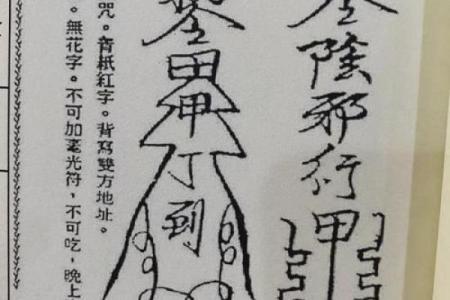 陰邪行甲
田甲丁到
咒。青紙紅字。背寫雙方地址。
。無花字。不可加毫光符，不可吃，晚上